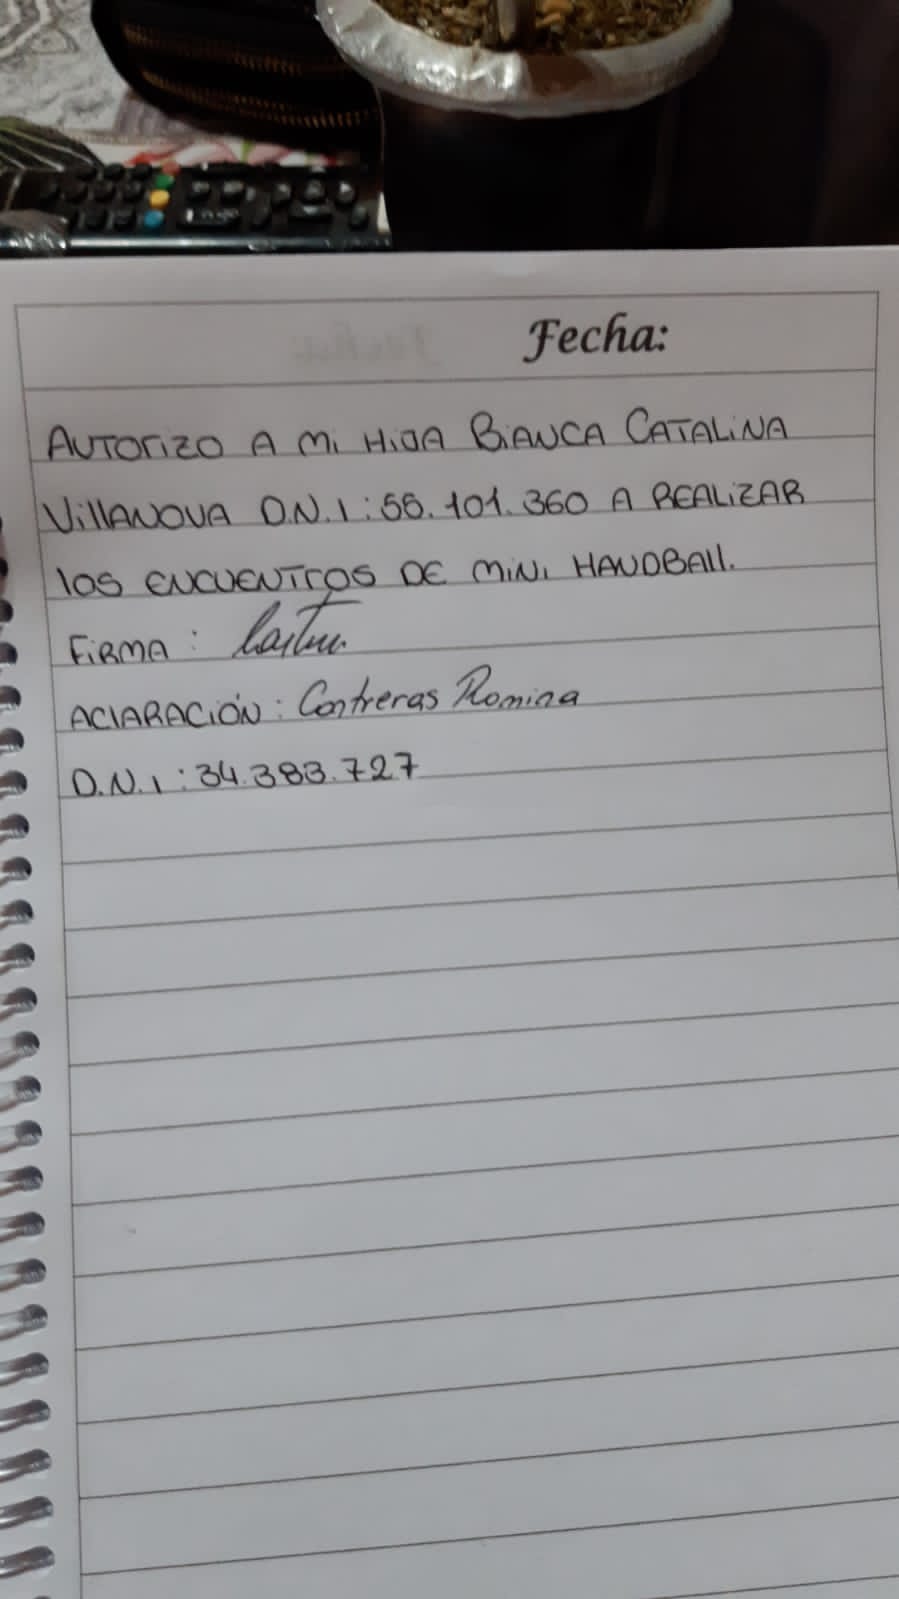 Fecha:
AUTORIZO A Mi HiJA BIANCA CATALINA
VILLANOVA D.N.I: 55.101.360 A REALIZAR
LOS ENCUENTROS DE MINI HANDBALL.
FIRMA:
ACLARACIÓN: Contreras Romina
D.N.I: 34.383.727